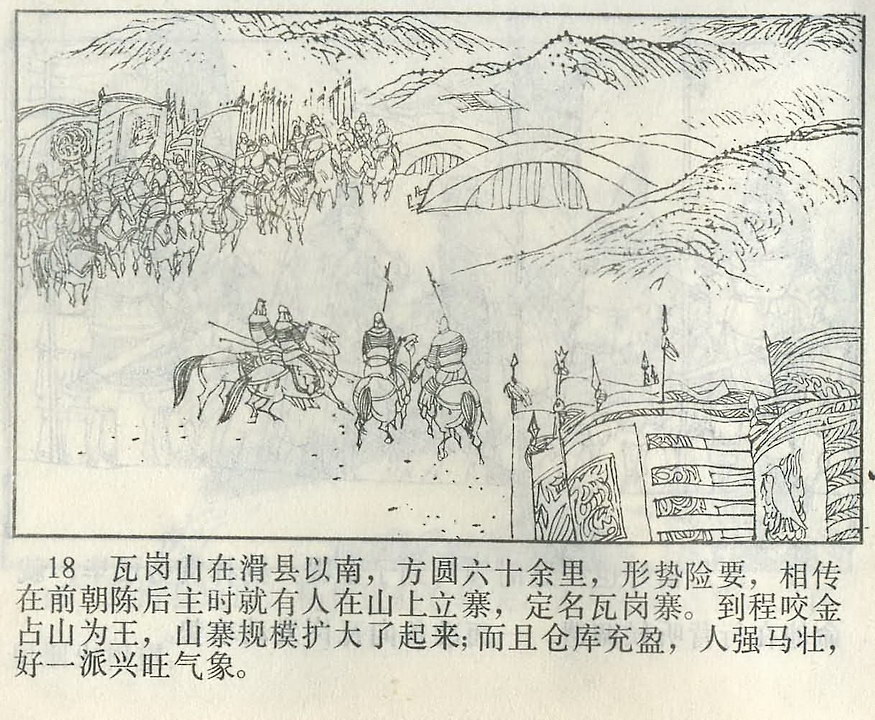 18 瓦岗山在滑县以南，方圆六十余里，形势险要，相传
在前朝陈后主时就有人在山上立寨，定名瓦岗寨。到程咬金
占山为王，山寨规模扩大了起来；而且仓库充盈，人强马壮，
好一派兴旺气象。